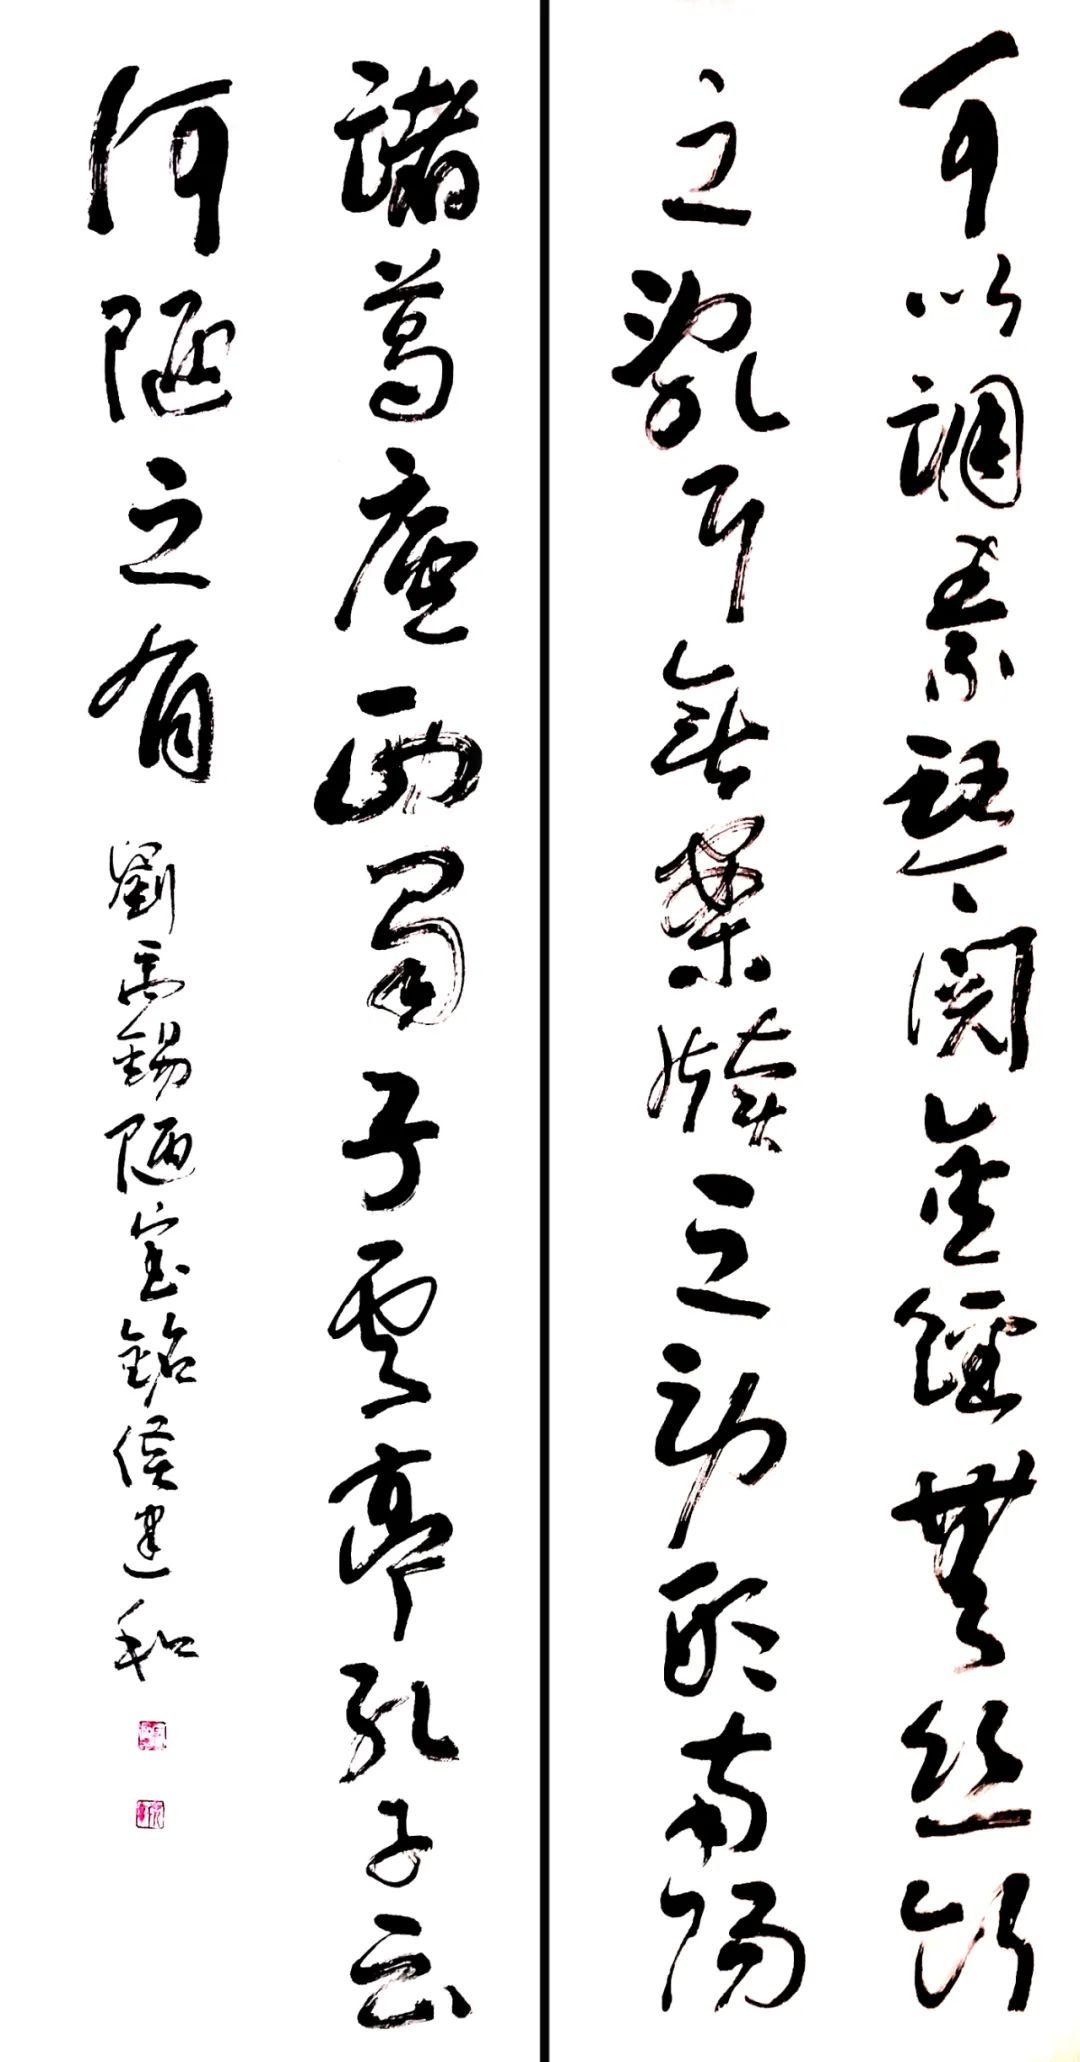 可以調素琴閱金經無絲竹
之亂耳無案牘之勞形南陽
諸葛廬西蜀子雲亭孔子云
何陋之有
劉禹錫陋室銘侯建和